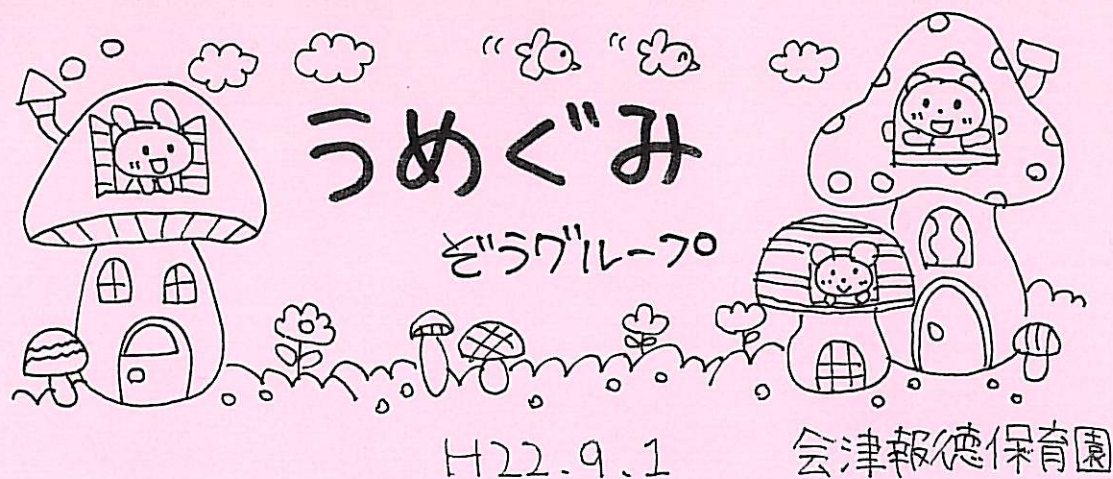 うめぐみ
ぞうグループ
H22.9.1 会津報徳保育園